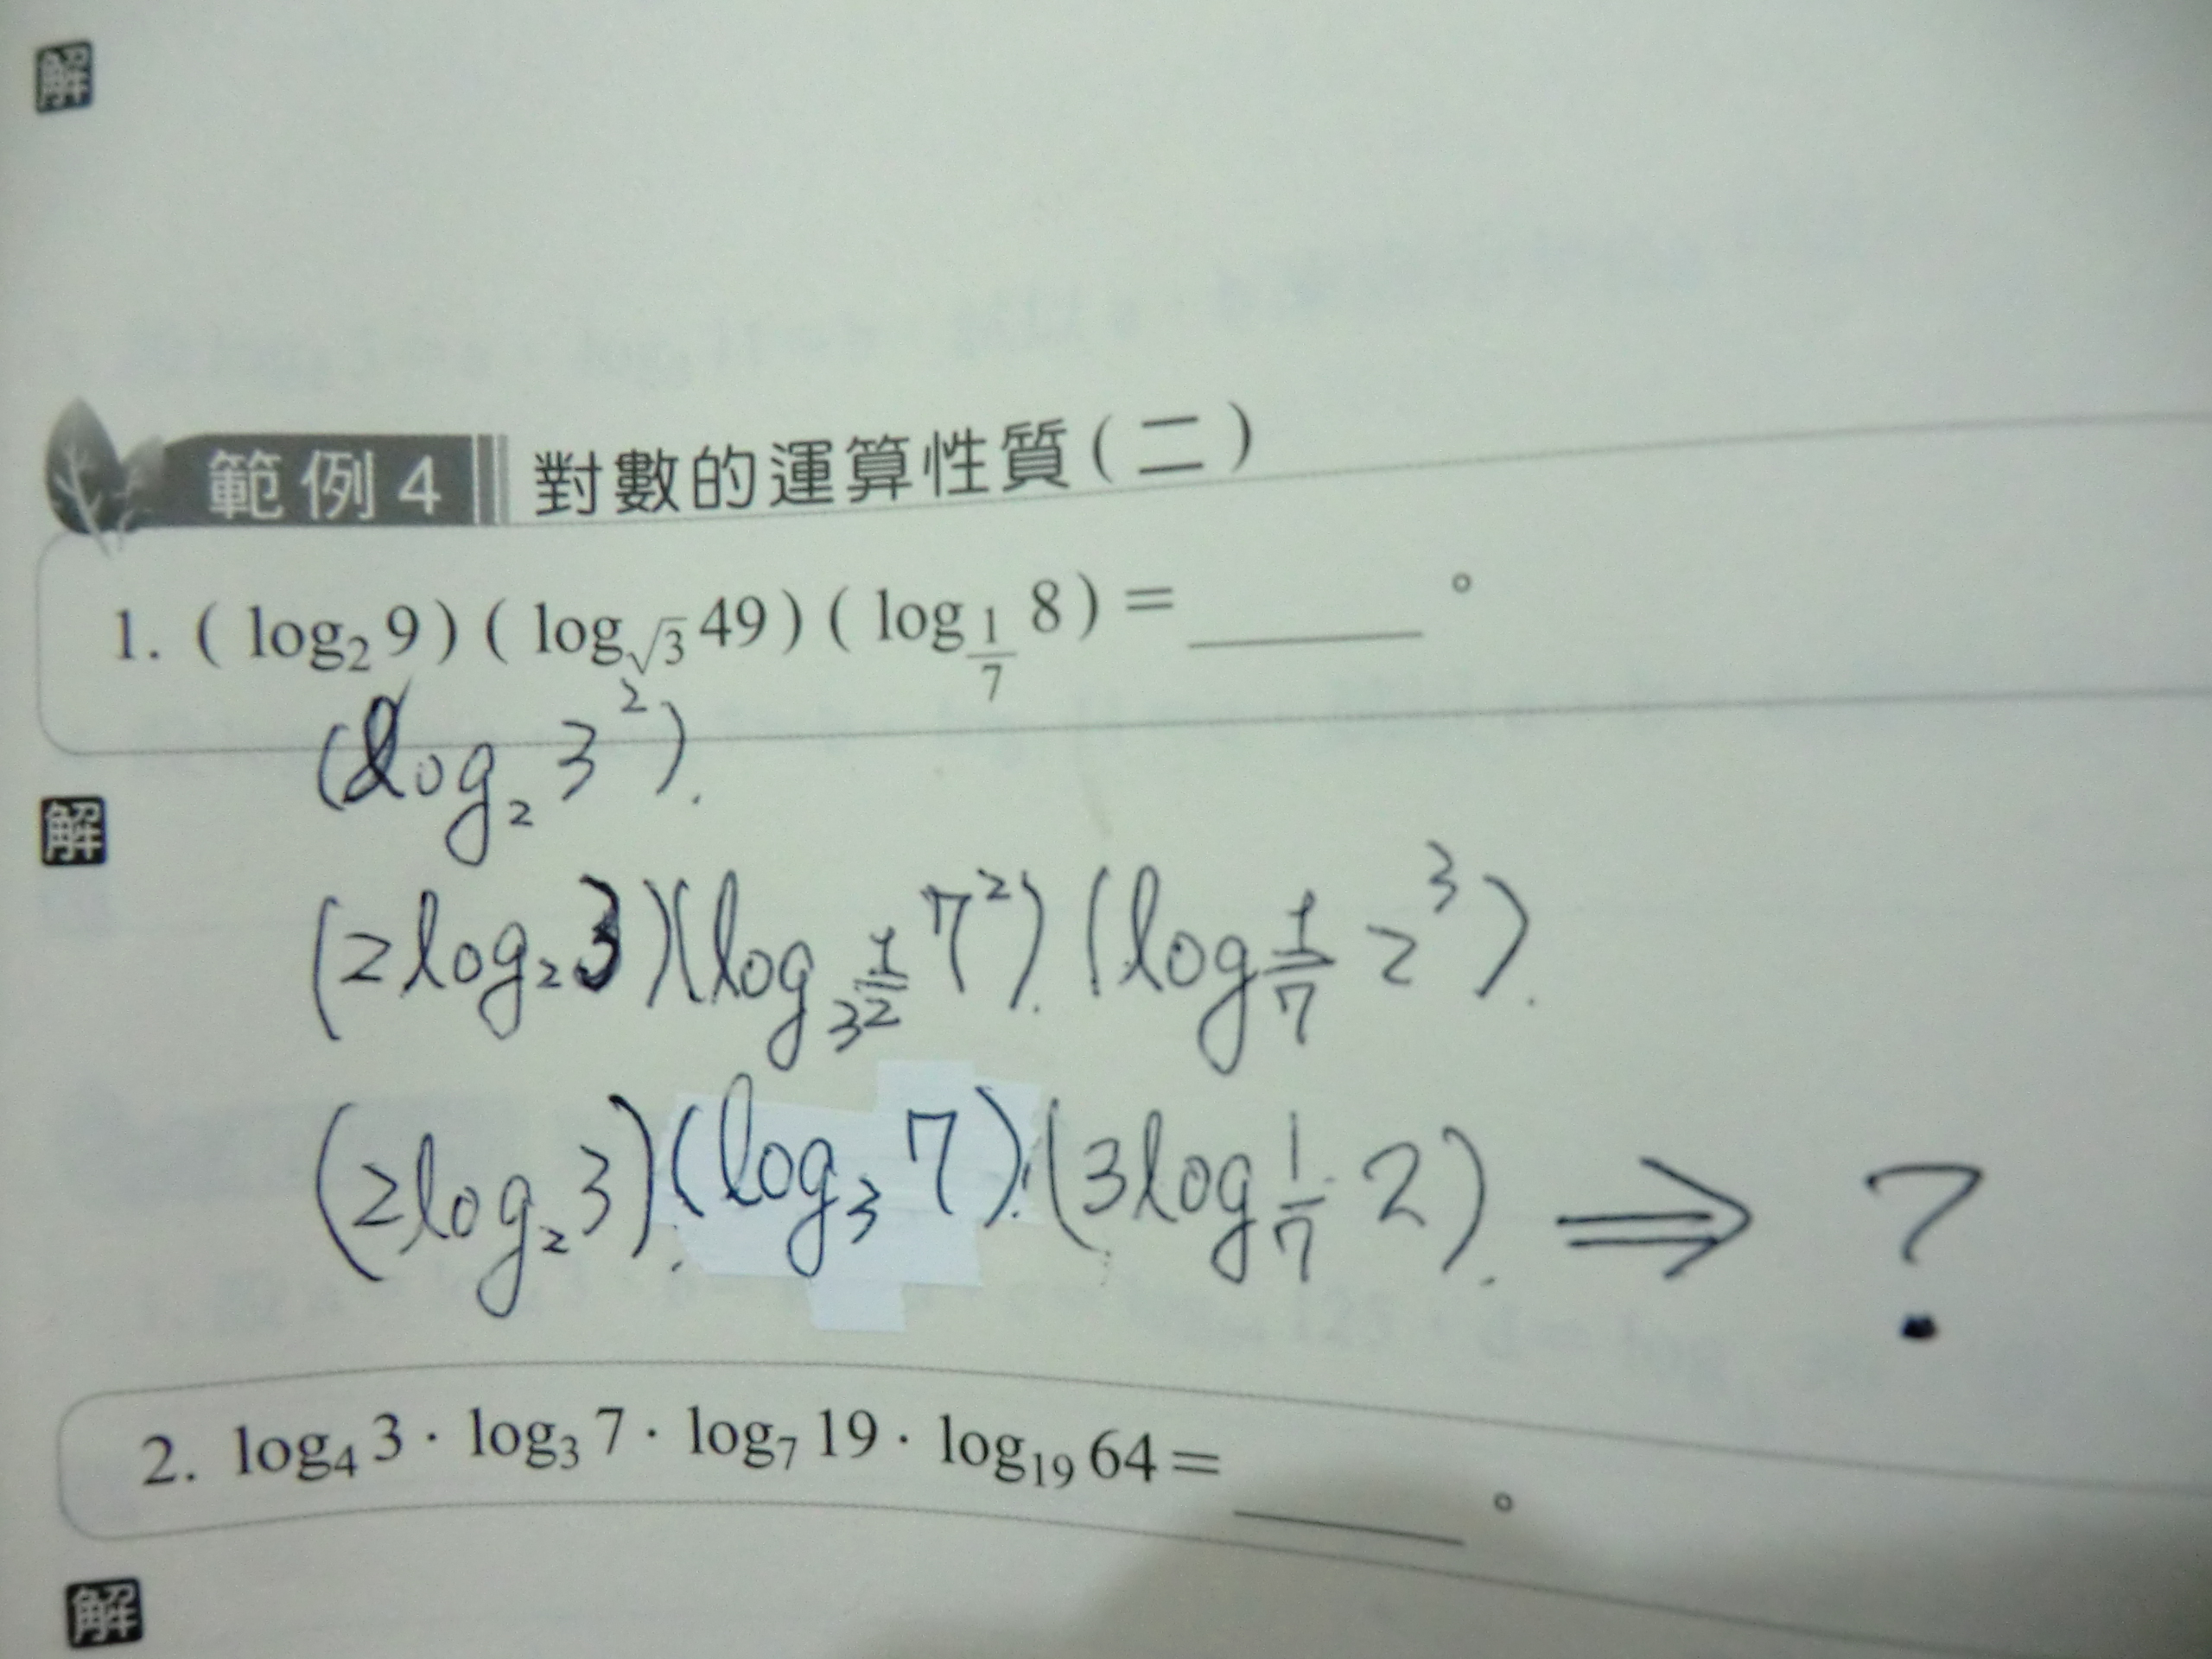 解
範例4 對數的運算性質(二)
1. ( log₂ 9 ) ( log_√3 49 ) ( log_1/7 8 ) = ______ 。
(log₂ 3²).
解
(2log₂3)(log_3^1/2 7²).(log_1/7 2³).
(2log₂3).(log₃7).(3log_1/7 2). ⇒ ?
2. log₄ 3 · log₃ 7 · log₇ 19 · log₁₉ 64 = ______ 。
解